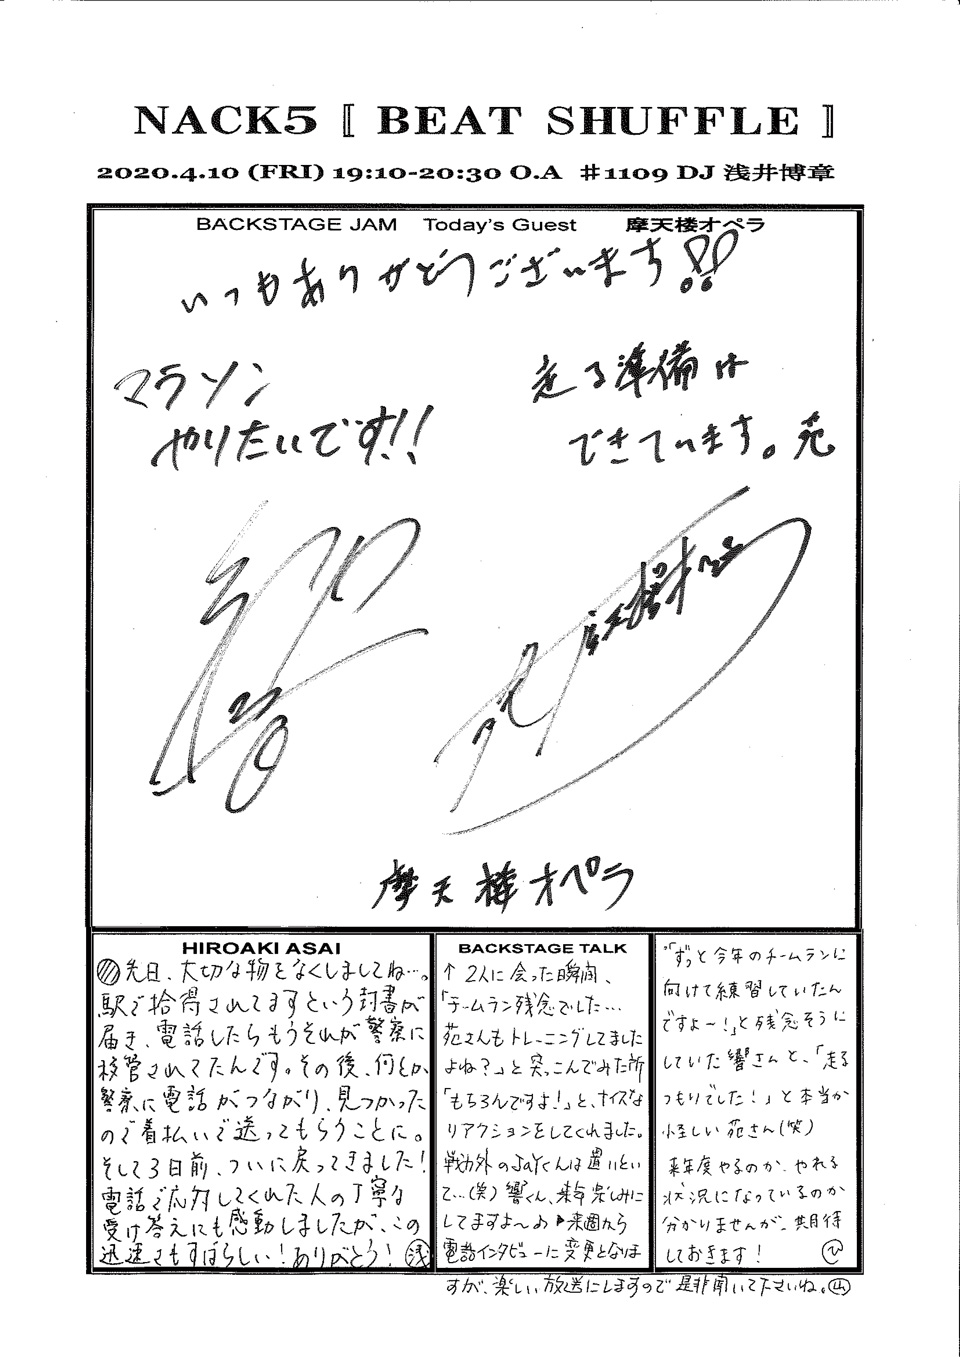 NACK5 〚 BEAT SHUFFLE 〛
2020.4.10 (FRI) 19:10-20:30 O.A #1109 DJ 浅井博章
BACKSTAGE JAM Today's Guest 摩天楼オペラ
いつもありがとうございます!!
マラソン
やりたいです!!
走る準備は
できています。苑
響
苑 摩天楼オペラ
摩天楼オペラ
HIROAKI ASAI
先日、大切な物をなくしましてね…。
駅で拾得されてますという封書が
届き、電話したらもうそれが警察に
移管されてたんです。その後、何とか
警察に電話がつながり、見つかった
ので着払いで送ってもらうことに。
そして3日前、ついに戻ってきました!
電話で応対してくれた人の丁寧な
受け答えにも感動しましたが、この
迅速さもすばらしい!ありがとう! 浅
BACKSTAGE TALK
↑ 2人に会った瞬間、
「チームラン残念でした…
苑さんもトレーニングしてました
よね?」と突っこんでみた所
「もちろんですよ!」と、ナイスな
リアクションをしてくれました。
戦力外のJaYくんは置いとい
て…(笑)響くん、来年楽しみに
してますよ〜♪ 来週から
電話インタビューに変更となりま
すが、楽しい放送にしますので是非聞いて下さいね。山
「ずっと今年のチームランに
向けて練習していたん
ですよ〜!」と残念そうに
していた響さんと、「走る
つもりでした!」と本当か
怪しい苑さん(笑)
来年度やるのか、やれる
状況になっているのか
分かりませんが、期待
しておきます! ひ